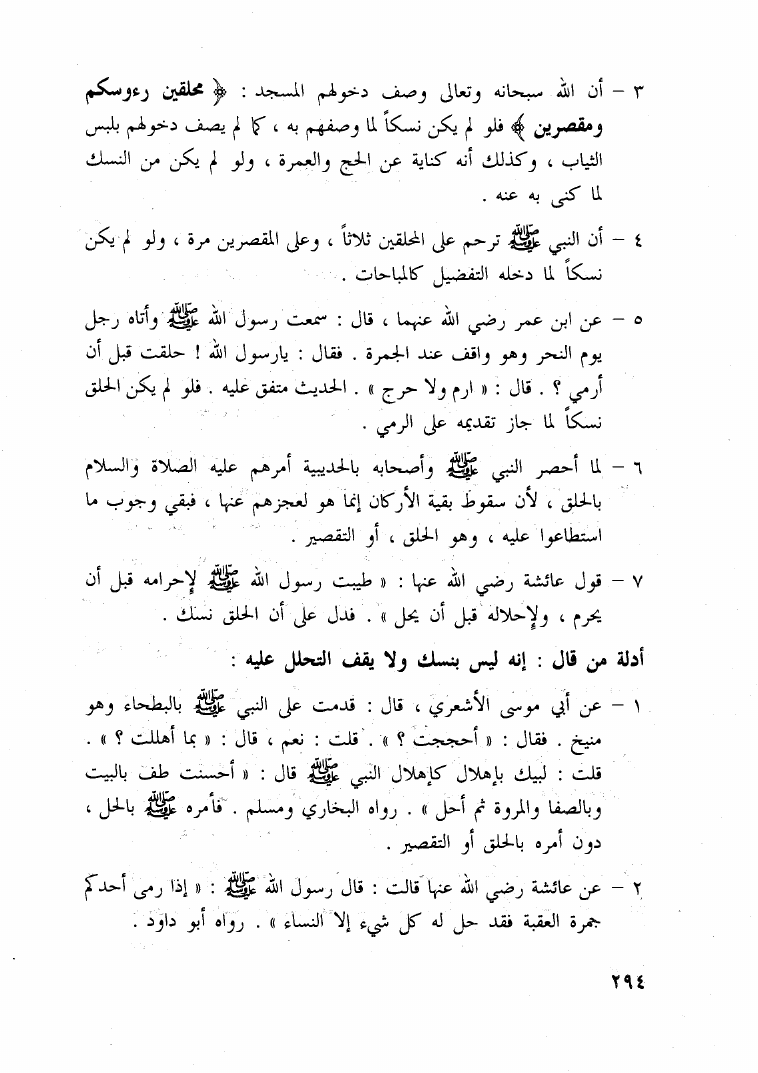 ٣ – أن الله سبحانه وتعالى وصف دخولهم المسجد : ﴿ محلقين رءوسكم
ومقصرين ﴾ فلو لم يكن نسكاً لما وصفهم به ، كما لم يصف دخولهم بلبس
الثياب ، وكذلك أنه كناية عن الحج والعمرة ، ولو لم يكن من النسك
لما كنى به عنه .
٤ – أن النبي ﷺ ترحم على المحلقين ثلاثاً ، وعلى المقصرين مرة ، ولو لم يكن
نسكاً لما دخله التفضيل كالمباحات .
٥ – عن ابن عمر رضي الله عنهما ، قال : سمعت رسول الله ﷺ وأتاه رجل
يوم النحر وهو واقف عند الجمرة . فقال : يارسول الله ! حلقت قبل أن
أرمي ؟ . قال : « ارم ولا حرج » . الحديث متفق عليه . فلو لم يكن الحلق
نسكاً لما جاز تقديمه على الرمي .
٦ – لما أحصر النبي ﷺ وأصحابه بالحديبية أمرهم عليه الصلاة والسلام
بالحلق ، لأن سقوط بقية الأركان إنما هو لعجزهم عنها ، فبقي وجوب ما
استطاعوا عليه ، وهو الحلق ، أو التقصير .
٧ – قول عائشة رضي الله عنها : « طيبت رسول الله ﷺ لإحرامه قبل أن
يحرم ، ولإحلاله قبل أن يحل » . فدل على أن الحلق نسك .
أدلة من قال : إنه ليس بنسك ولا يقف التحلل عليه :
١ – عن أبي موسى الأشعري ، قال : قدمت على النبي ﷺ بالبطحاء وهو
منيخ . فقال : « أحججت ؟ » . قلت : نعم ، قال : « بما أهللت ؟ » .
قلت : لبيك بإهلال كإهلال النبي ﷺ قال : « أحسنت طف بالبيت
وبالصفا والمروة ثم أحل » . رواه البخاري ومسلم . فأمره ﷺ بالحل ،
دون أمره بالحلق أو التقصير .
٢ – عن عائشة رضي الله عنها قالت : قال رسول الله ﷺ : « إذا رمى أحدكم
جمرة العقبة فقد حل له كل شيء إلا النساء » . رواه أبو داود .
٢٩٤